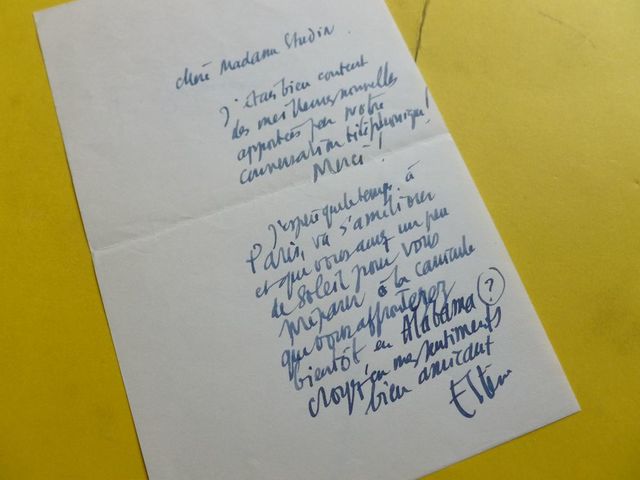 Chère Madame Studin
J'étais bien content
des meilleures nouvelles
apportées par notre
conversation téléphonique!
Merci!
J'espère que le temps à
Paris, va s'améliorer
et que vous aurez un peu
de soleil pour vous
préparer à la canicule
que vous affronterez
bientôt en Alabama (?)
croyez en mes sentiments
bien amicaux